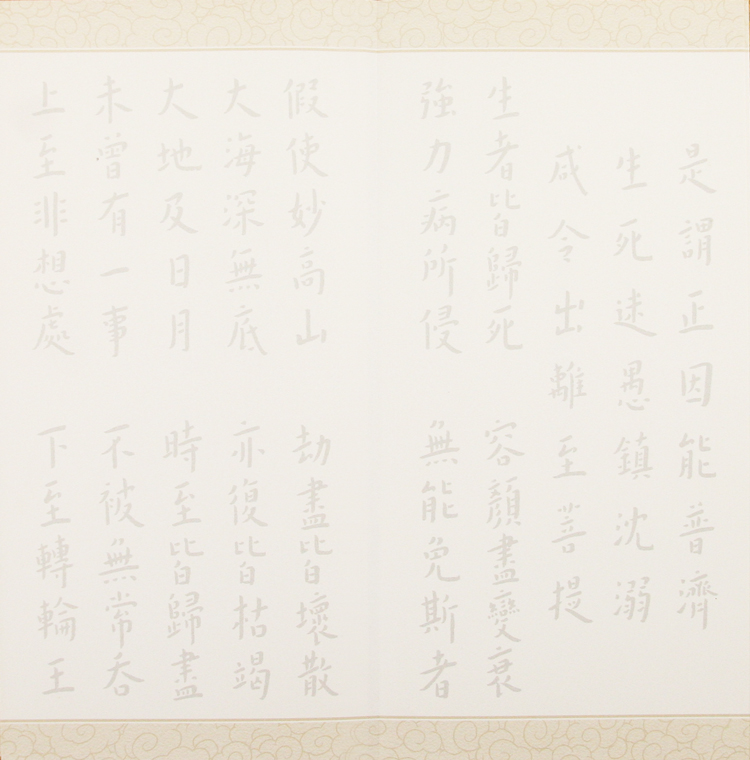 是謂正因能普濟
生死迷愚鎮沈溺
咸令出離至菩提
生者皆歸死 容顏盡變衰
強力病所侵 無能免斯者
假使妙高山 劫盡皆壞散
大海深無底 亦復皆枯竭
大地及日月 時至皆歸盡
未曾有一事 不被無常吞
上至非想處 下至轉輪王